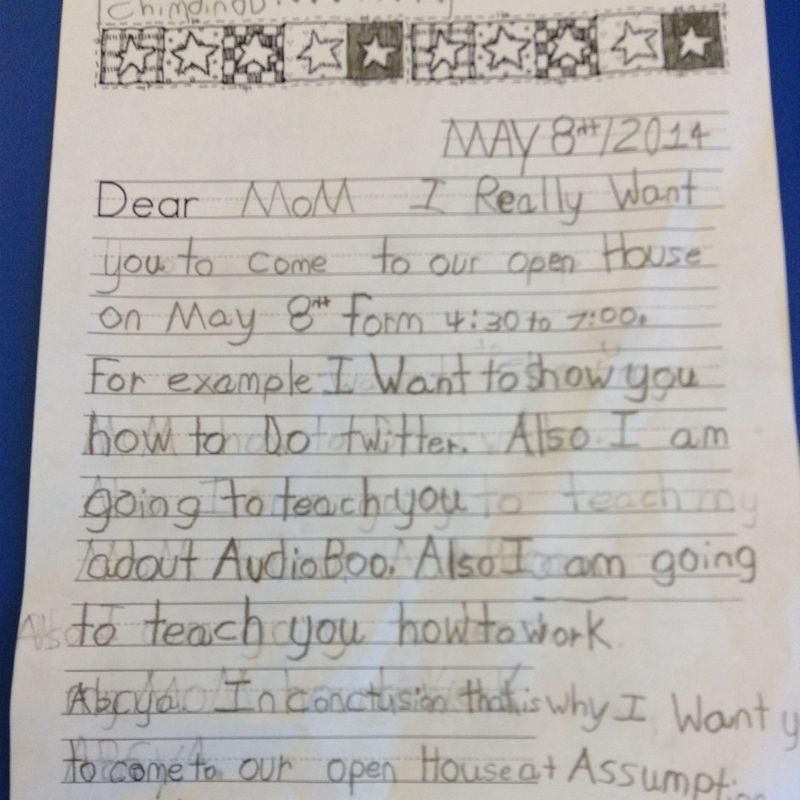 MAY 8th/2014
Dear MoM I Really Want
you to come to our open House
on May 8th form 4:30 to 7:00.
For example I Want to show you
how to Do twitter. Also I am
going to teach you to teach my
adout AudioBoo. Also I am going
to teach you how to work
Abcya. In conctusion that is why I Want y
to come to our open House at Assumpti